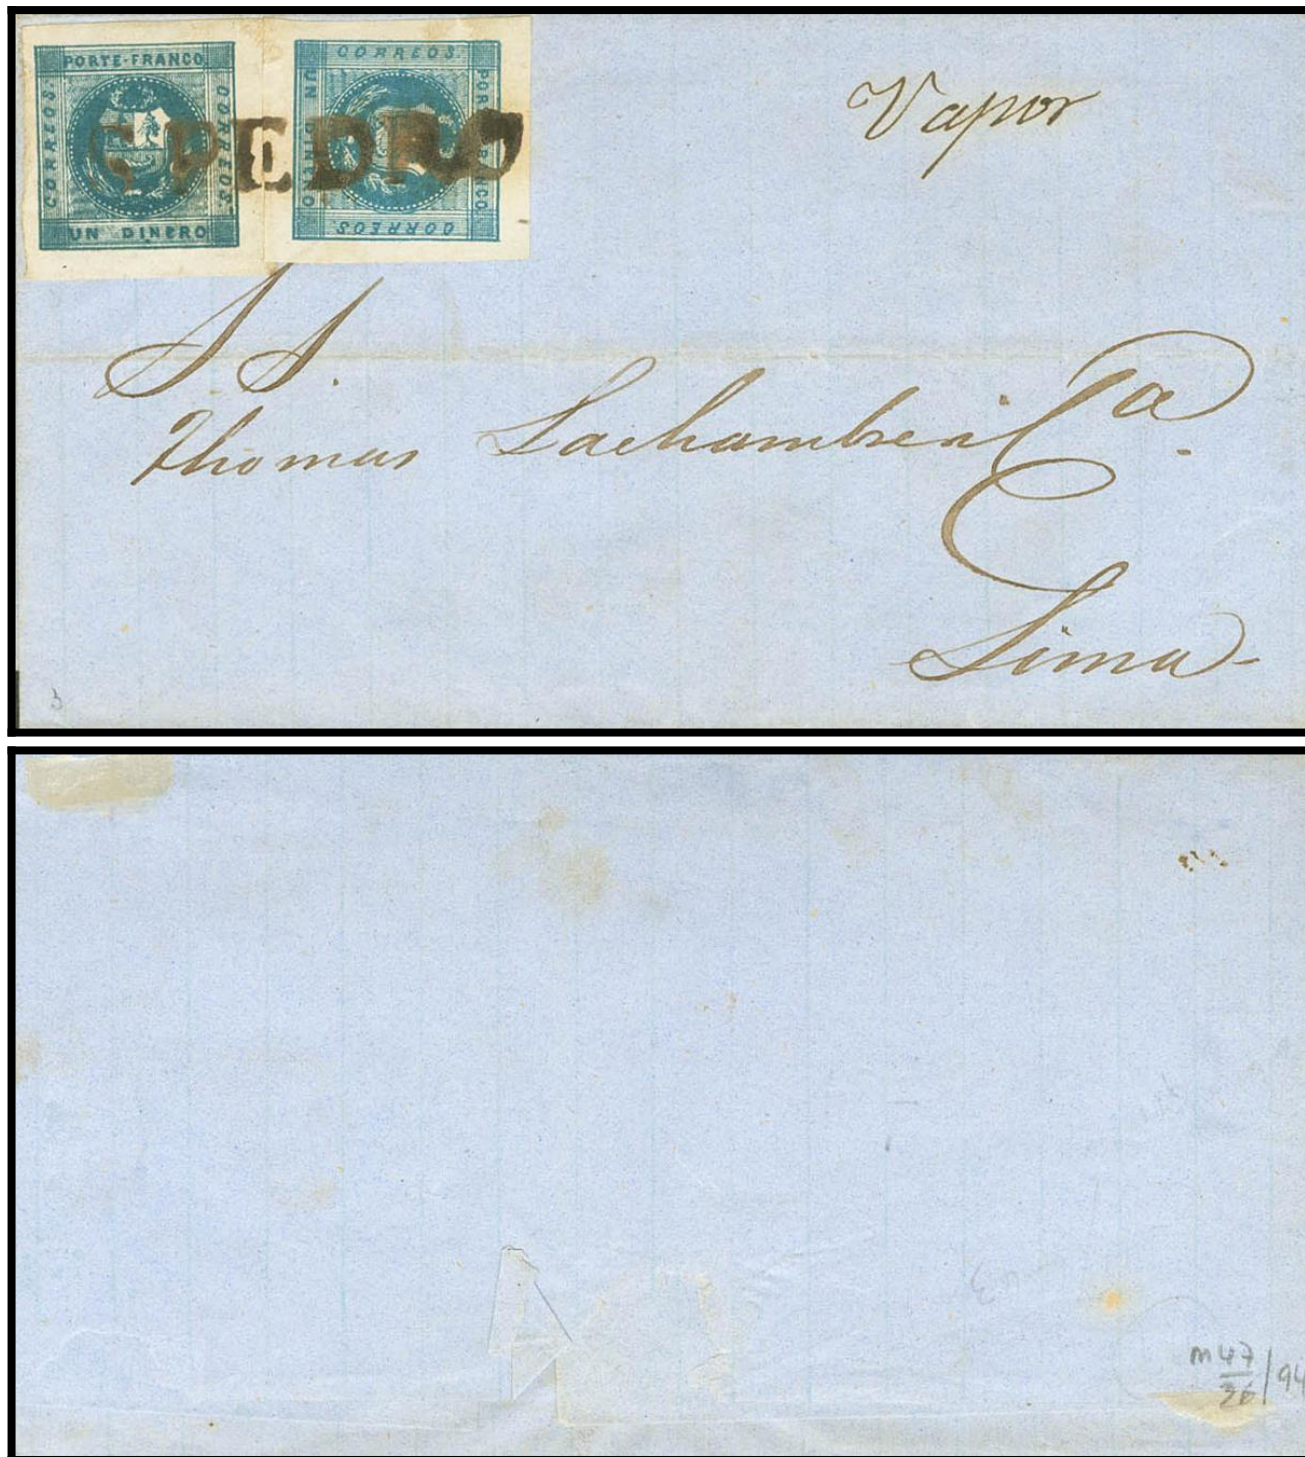 PORTE·FRANCO
CORREOS
CORREOS
UN DINERO
CORREOS
PORTE FRANCO
UN DINERO
CORREOS
S PEDRO
Vapor
S. S.
Thomas Lachambre i Cª
Lima
3
M 47
36 / 94